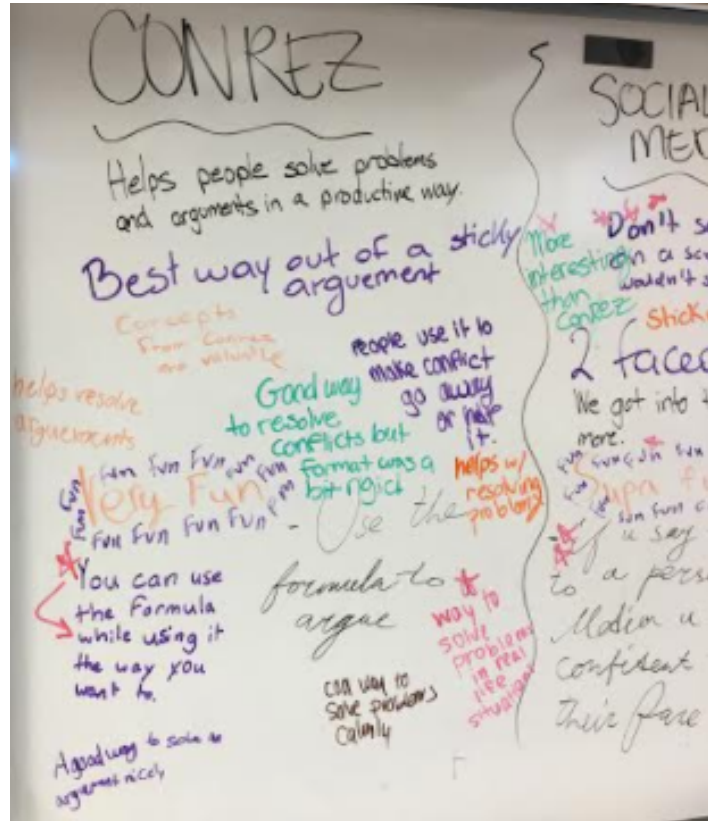 CONREZ
Helps people solve problems
and arguments in a productive way.
Best way out of a sticky
arguement
Concepts
from Conrez
are valuable
helps resolve
Good way
to resolve
conflicts but
format was a
bit rigid
People use it to
make conflict
go away
or
it.
helps w/
resolving
problems
Fun Fun Fun Fun Fun
Very Fun
Fun Fun Fun Fun Fun
- Use the
formula to
argue
You can use
the Formula
while using it
the way you
want to.
way to
solve
problems
in real
life
situations
way to
solve problems
calmly
A good way to solve
argument nicely
SOCIAL
Don't
on a
wouldn't
More
interesting
than
conrez
2
We got into
more.
Fun Fun Fun Fun
Supa
Fun Fun
If u say
to a
u
their